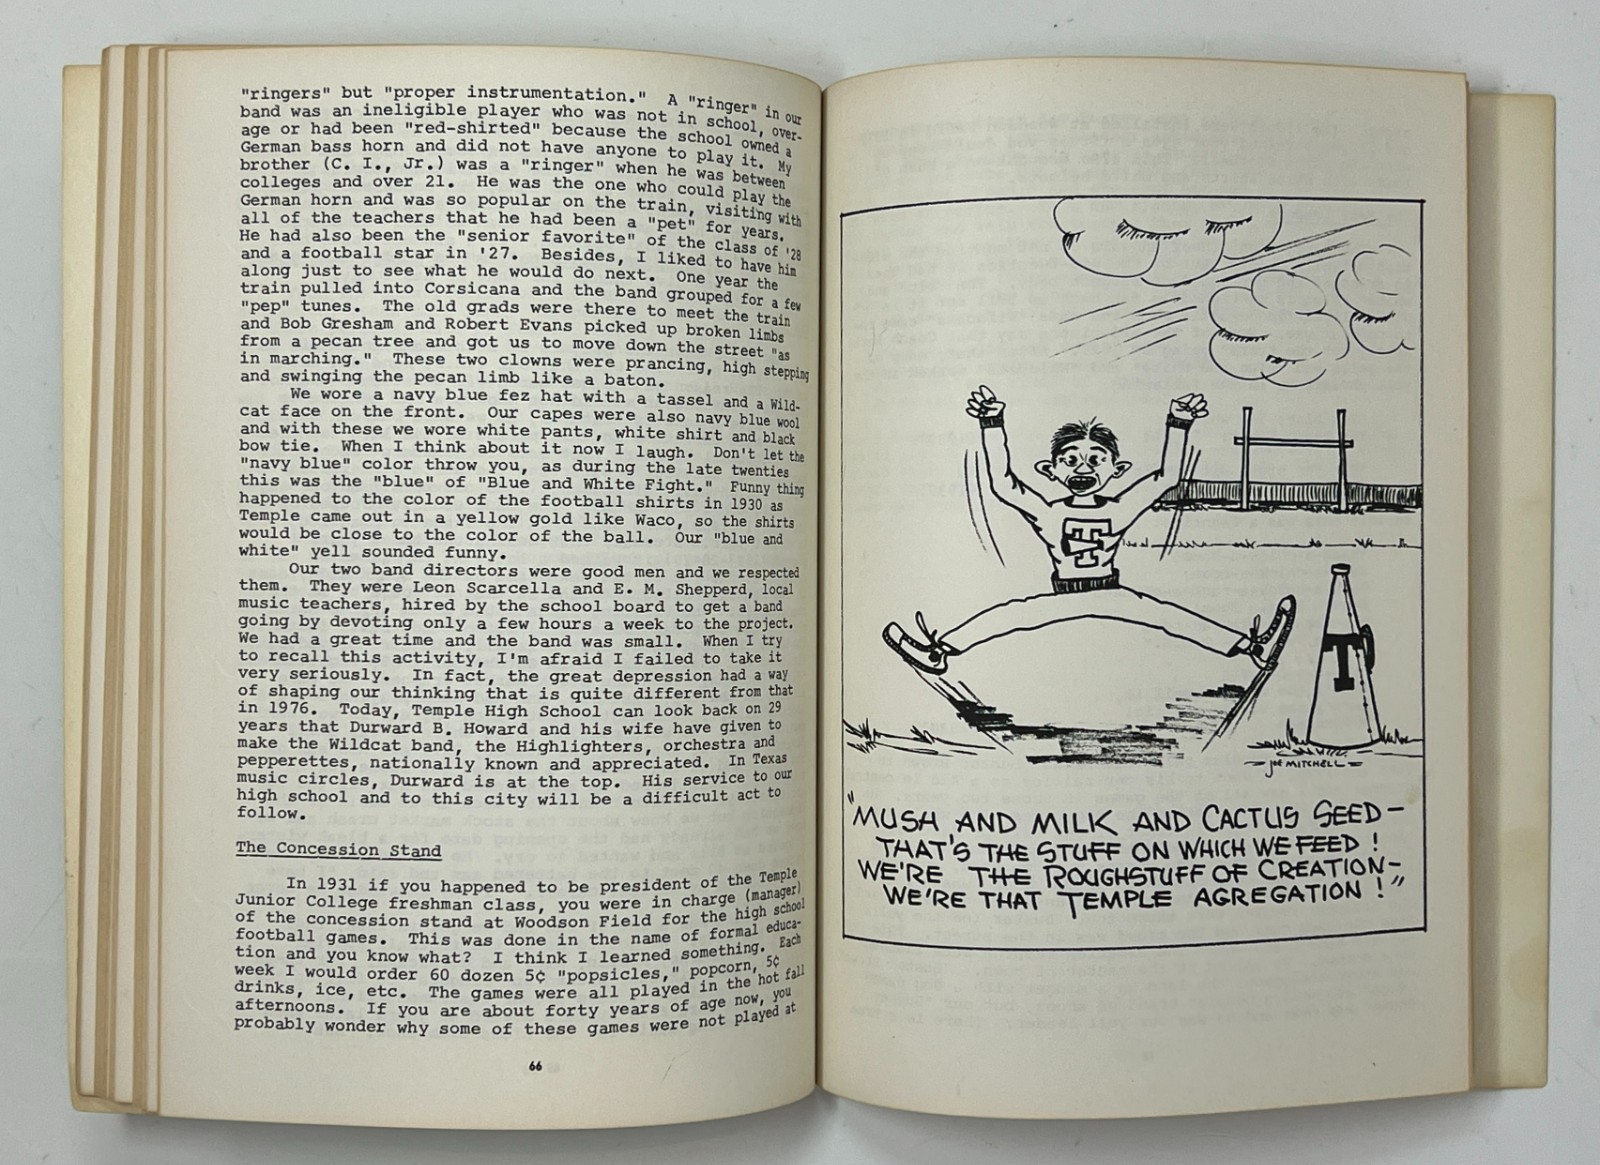 "ringers" but "proper instrumentation." A "ringer" in our
band was an ineligible player who was not in school, over-
age or had been "red-shirted" because the school owned a
German bass horn and did not have anyone to play it. My
brother (C. I., Jr.) was a "ringer" when he was between
colleges and over 21. He was the one who could play the
German horn and was so popular on the train, visiting with
all of the teachers that he had been a "pet" for years.
He had also been the "senior favorite" of the class of '28
and a football star in '27. Besides, I liked to have him
along just to see what he would do next. One year the
train pulled into Corsicana and the band grouped for a few
"pep" tunes. The old grads were there to meet the train
and Bob Gresham and Robert Evans picked up broken limbs
from a pecan tree and got us to move down the street "as
in marching." These two clowns were prancing, high stepping
and swinging the pecan limb like a baton.
We wore a navy blue fez hat with a tassel and a Wild-
cat face on the front. Our capes were also navy blue wool
and with these we wore white pants, white shirt and black
bow tie. When I think about it now I laugh. Don't let the
"navy blue" color throw you, as during the late twenties
this was the "blue" of "Blue and White Fight." Funny thing
happened to the color of the football shirts in 1930 as
Temple came out in a yellow gold like Waco, so the shirts
would be close to the color of the ball. Our "blue and
white" yell sounded funny.
Our two band directors were good men and we respected
them. They were Leon Scarcella and E. M. Shepperd, local
music teachers, hired by the school board to get a band
going by devoting only a few hours a week to the project.
We had a great time and the band was small. When I try
to recall this activity, I'm afraid I failed to take it
very seriously. In fact, the great depression had a way
of shaping our thinking that is quite different from that
in 1976. Today, Temple High School can look back on 29
years that Durward B. Howard and his wife have given to
make the Wildcat band, the Highlighters, orchestra and
pepperettes, nationally known and appreciated. In Texas
music circles, Durward is at the top. His service to our
high school and to this city will be a difficult act to
follow.
The Concession Stand
In 1931 if you happened to be president of the Temple
Junior College freshman class, you were in charge (manager)
of the concession stand at Woodson Field for the high school
football games. This was done in the name of formal educa-
tion and you know what? I think I learned something. Each
week I would order 60 dozen 5¢ "popsicles," popcorn, 5¢
drinks, ice, etc. The games were all played in the hot fall
afternoons. If you are about forty years of age now, you
probably wonder why some of these games were not played at
66
T
T
JOE MITCHELL
"MUSH AND MILK AND CACTUS SEED—
THAT'S THE STUFF ON WHICH WE FEED!
WE'RE THE ROUGHSTUFF OF CREATION—
WE'RE THAT TEMPLE AGREGATION!"